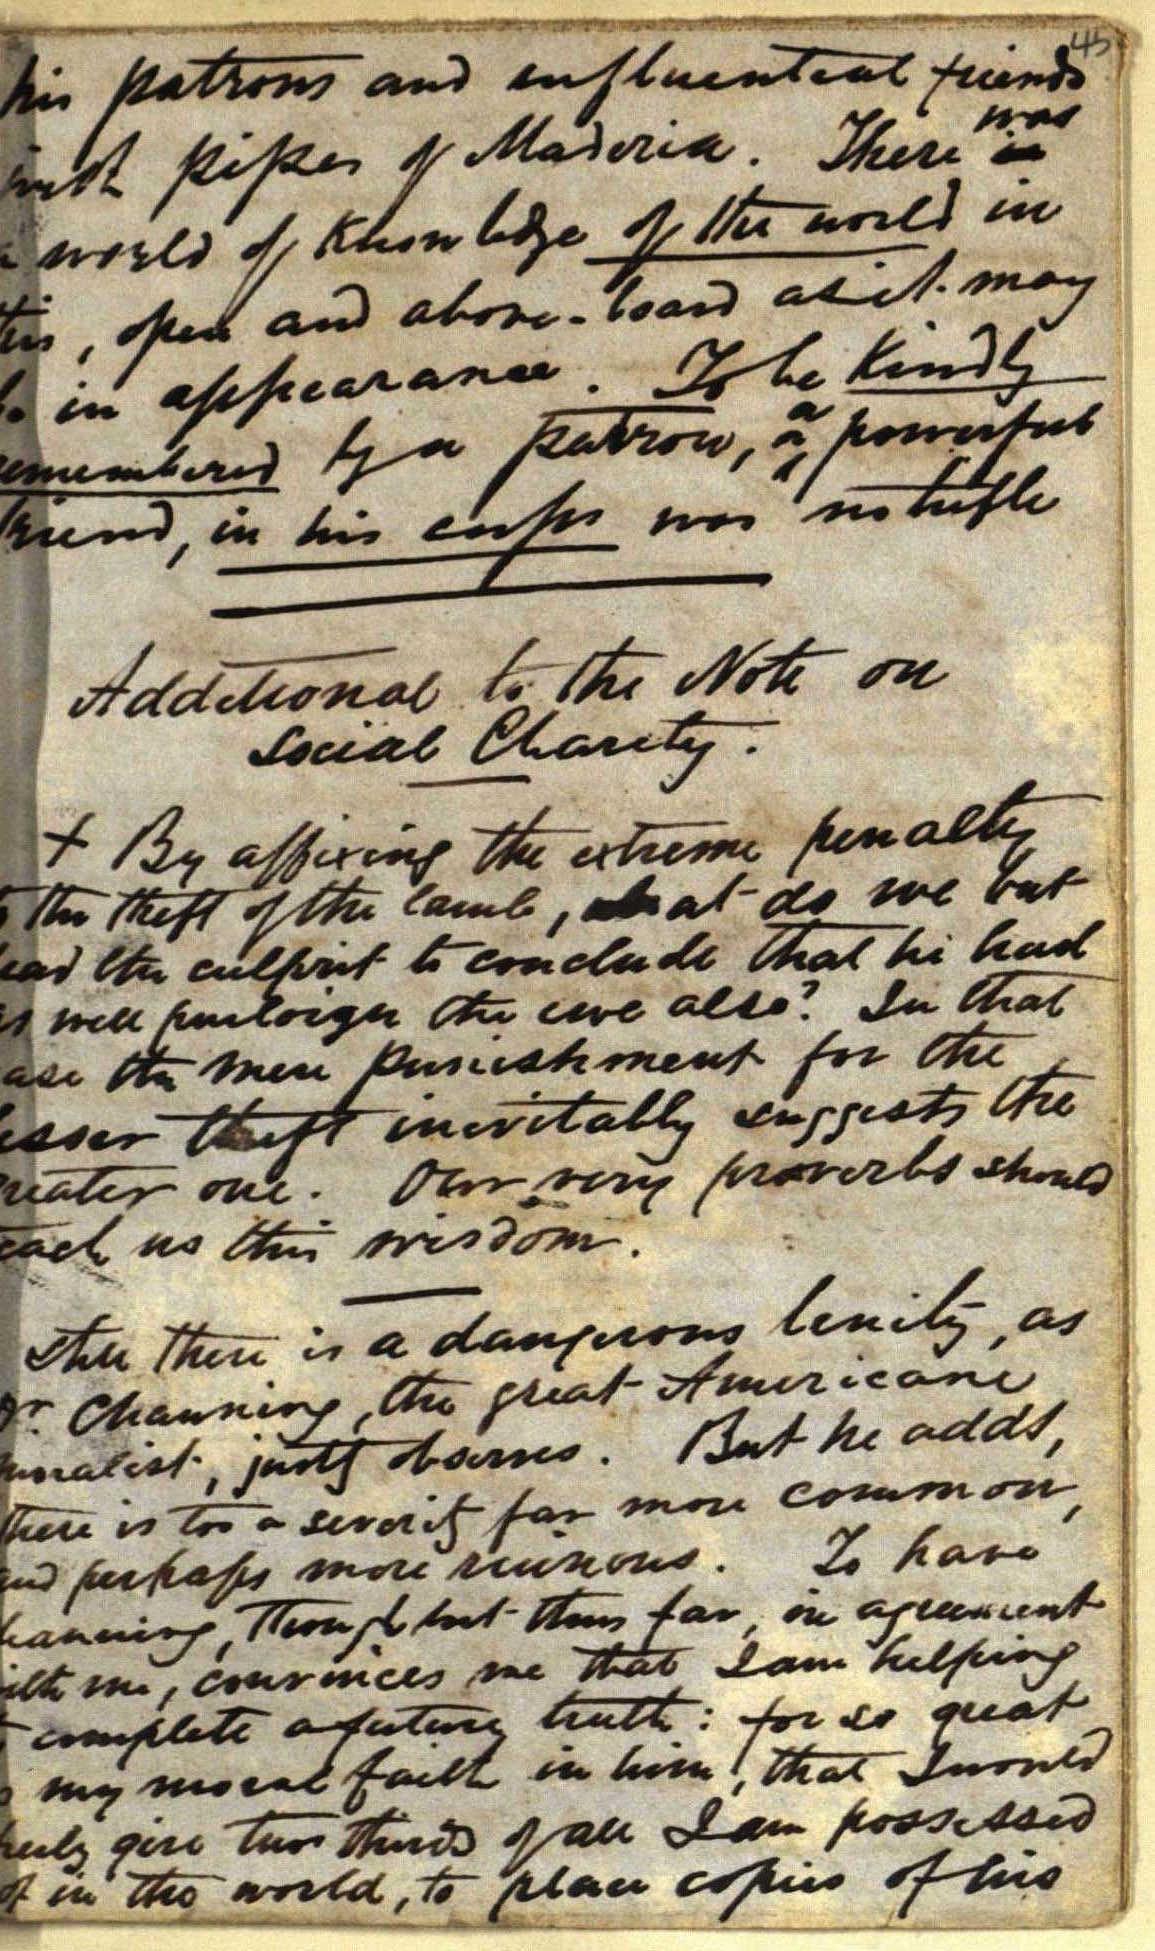 45
his patrons and influential friends
with pipes of Maderia. There is was
a world of Knowledge of the world in
this, open and above-board as it may
be in appearance. To be Kindly
remembered by a patron, a powerful
friend, in his cups was no trifle
Additional to the Note on
Social Charity.
+ By affixing the extreme penalty
to the theft of the lamb, what do we but
lead the culprit to conclude that he had
as well purloign the ewe also? In that
case the mere Punishment for the
lesser theft inevitably suggests the
greater one. Our very proverbs should
teach us this wisdom.
Still there is a dangerous lenity, as
Dr Channing, the great Americane
moralist, justly observes. But he adds,
there is too a severity far more common,
and perhaps more ruinous. To have
Channing, though but thus far, in agreement
with me, convinces me that I am helping
to complete a future truth: for so great
is my moral faith in him, that I would
freely give two thirds of all I am possessed
of in the world, to place copies of his